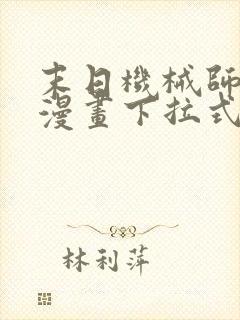 末日機械師
漫畫下拉式
林利萍